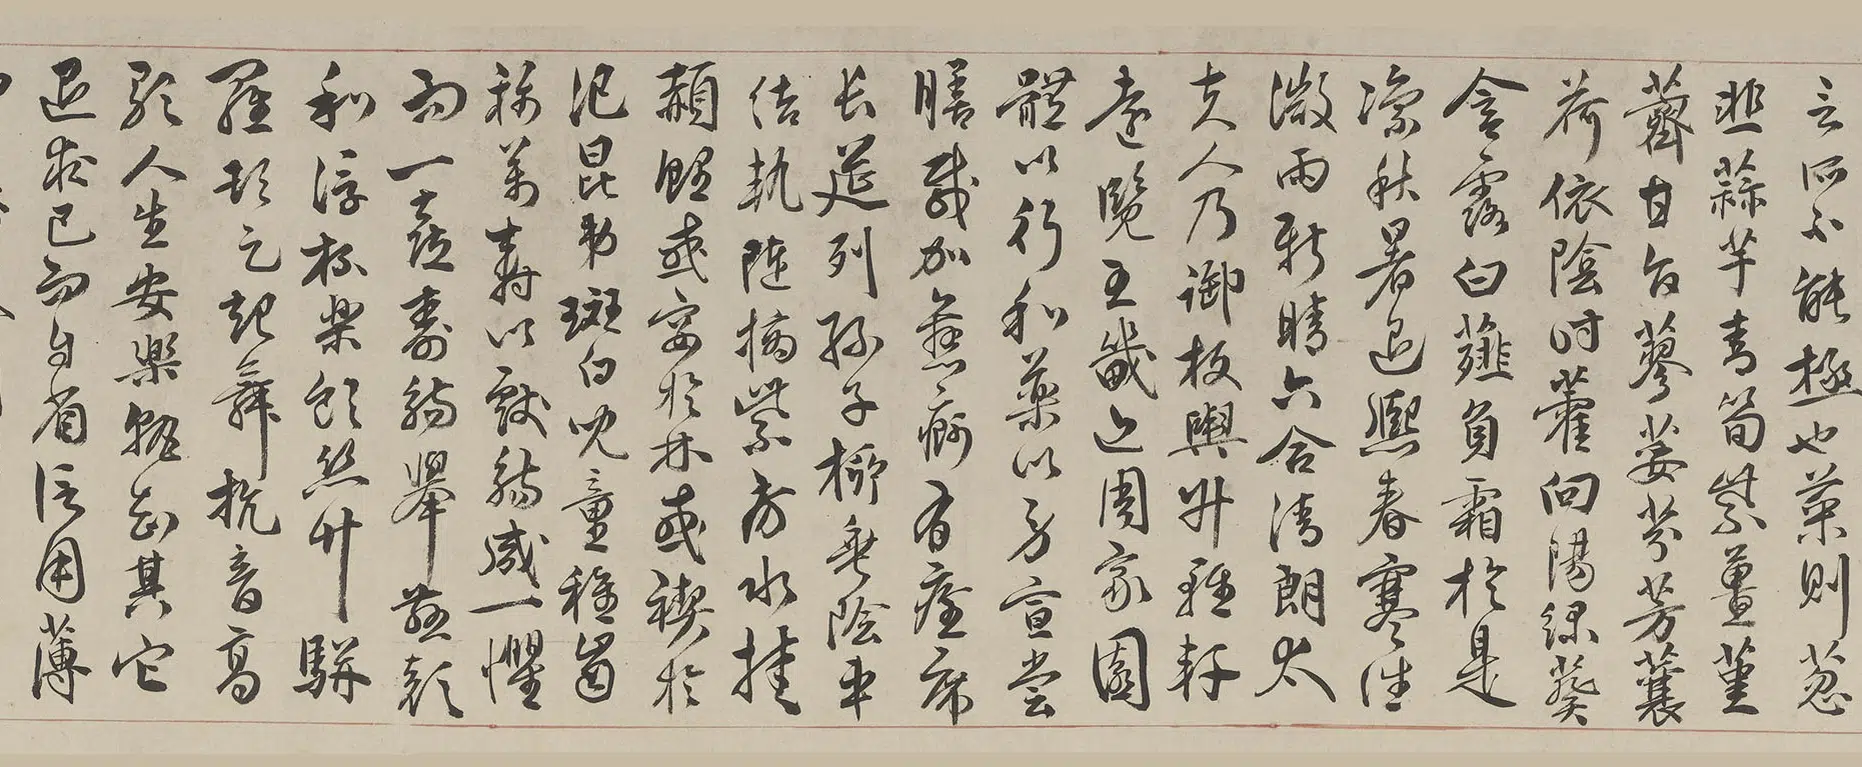 言所不能極也菜則葱
韭蒜芋青筍紫薑堇
薺甘旨蓼荽芬芳蘘
荷依陰時藿向陽緑葵
含露白薤負霜於是
凛秋暑退熙春寒往
微雨新晴六合清朗太
夫人乃御板輿升輕軒
遠覽王畿近周家園
體以行和藥以勞宣嘗
膳載加舊痾有痊席
長筵列孫子柳垂陰車
結軌陸摘紫房水挂
赬鯉或宴於林或禊於
汜昆弟斑白兒童稚齒
稱萬壽以獻觴咸一懼
而一喜壽觴舉慈顔
和浮杯樂飲絲竹駢
羅頓足起舞抗音高
歌人生安樂孰知其它
退求己而自省信用薄